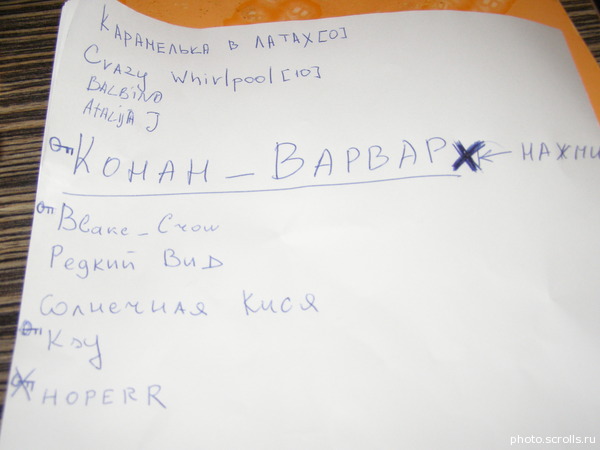 Карамелька в латах[0]
Crazy Whirlpool[10]
BALBINO
Atalija J
Конан_Варвар X ← НАЖМИ
Blake_Crow
Редкий Вид
Солнечная Кися
Ksy
HOPERR
photo.scrolls.ru